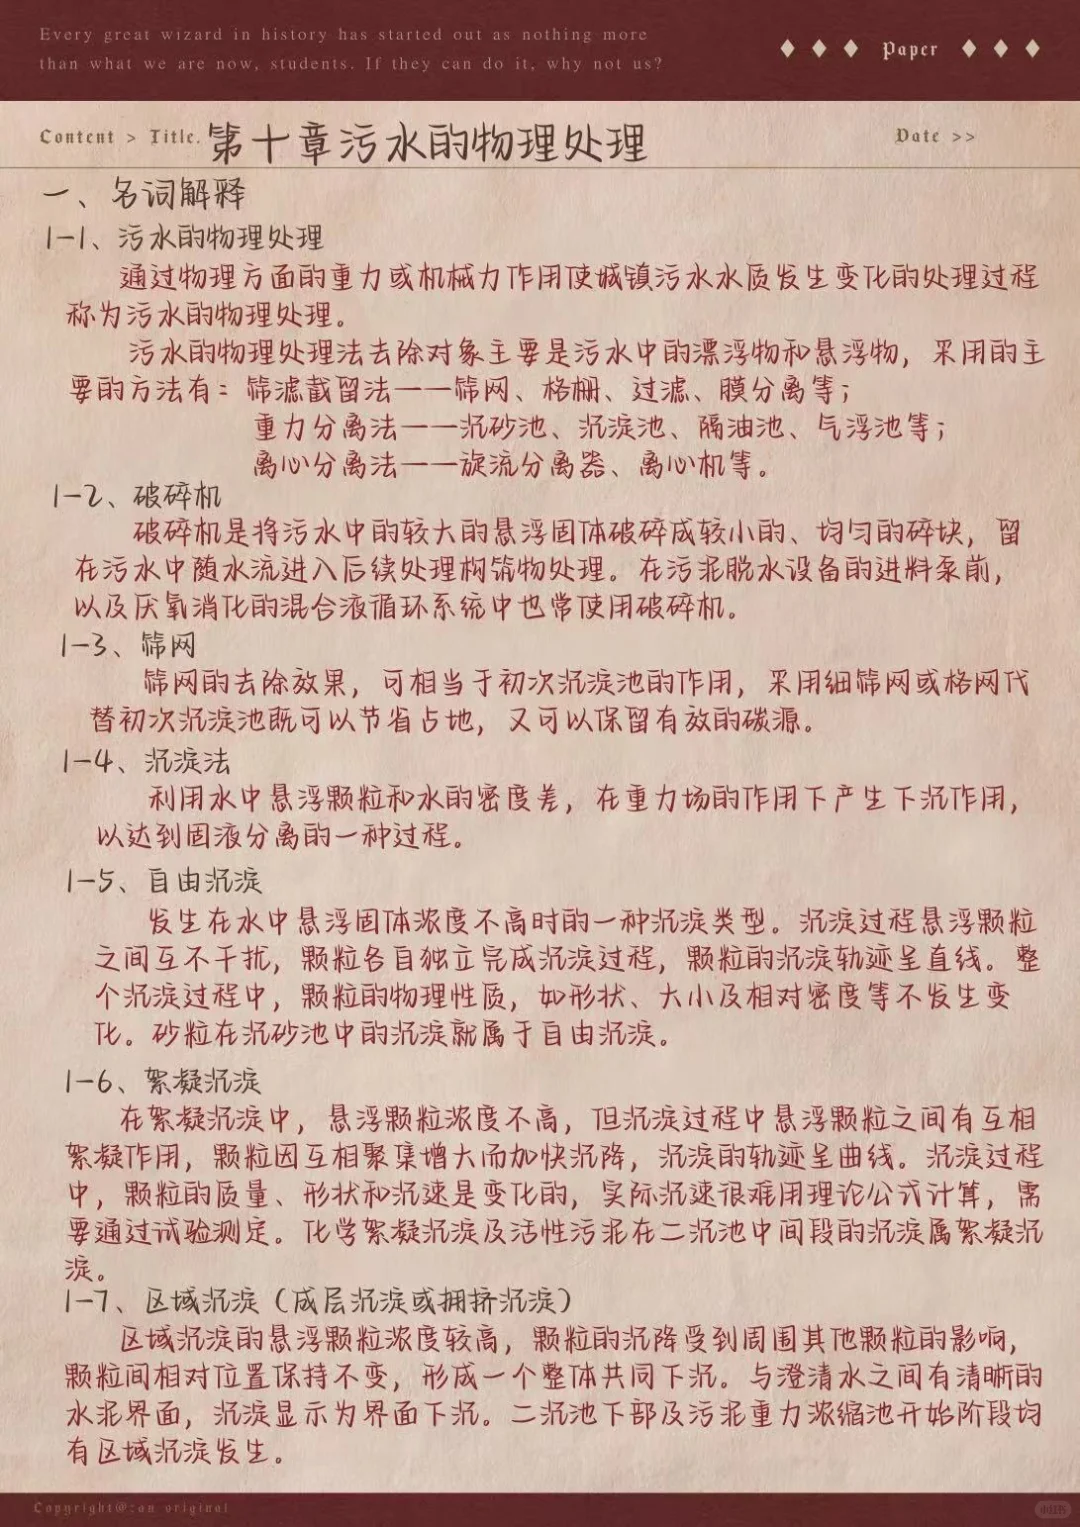 Every great wizard in history has started out as nothing more
than what we are now, students. If they can do it, why not us?
Paper
Content > Title.
第十章污水的物理处理
Date >>
一、名词解释
1-1、污水的物理处理
通过物理方面的重力或机械力作用使城镇污水水质发生变化的处理过程
称为污水的物理处理。
污水的物理处理法去除对象主要是污水中的漂浮物和悬浮物，采用的主
要的方法有：筛滤截留法——筛网、格栅、过滤、膜分离等；
重力分离法——沉砂池、沉淀池、隔油池、气浮池等；
离心分离法——旋流分离器、离心机等。
1-2、破碎机
破碎机是将污水中的较大的悬浮固体破碎成较小的、均匀的碎块，留
在污水中随水流进入后续处理构筑物处理。在污泥脱水设备的进料泵前，
以及厌氧消化的混合液循环系统中也常使用破碎机。
1-3、筛网
筛网的去除效果，可相当于初次沉淀池的作用，采用细筛网或格网代
替初次沉淀池既可以节省占地，又可以保留有效的碳源。
1-4、沉淀法
利用水中悬浮颗粒和水的密度差，在重力场的作用下产生下沉作用，
以达到固液分离的一种过程。
1-5、自由沉淀
发生在水中悬浮固体浓度不高时的一种沉淀类型。沉淀过程悬浮颗粒
之间互不干扰，颗粒各自独立完成沉淀过程，颗粒的沉淀轨迹呈直线。整
个沉淀过程中，颗粒的物理性质，如形状、大小及相对密度等不发生变
化。砂粒在沉砂池中的沉淀就属于自由沉淀。
1-6、絮凝沉淀
在絮凝沉淀中，悬浮颗粒浓度不高，但沉淀过程中悬浮颗粒之间有互相
絮凝作用，颗粒因互相聚集增大而加快沉降，沉淀的轨迹呈曲线。沉淀过程
中，颗粒的质量、形状和沉速是变化的，实际沉速很难用理论公式计算，需
要通过试验测定。化学絮凝沉淀及活性污泥在二沉池中间段的沉淀属絮凝沉
淀。
1-7、区域沉淀（成层沉淀或拥挤沉淀）
区域沉淀的悬浮颗粒浓度较高，颗粒的沉降受到周围其他颗粒的影响，
颗粒间相对位置保持不变，形成一个整体共同下沉。与澄清水之间有清晰的
水泥界面，沉淀显示为界面下沉。二沉池下部及污泥重力浓缩池开始阶段均
有区域沉淀发生。
Copyright@:an original
小红书